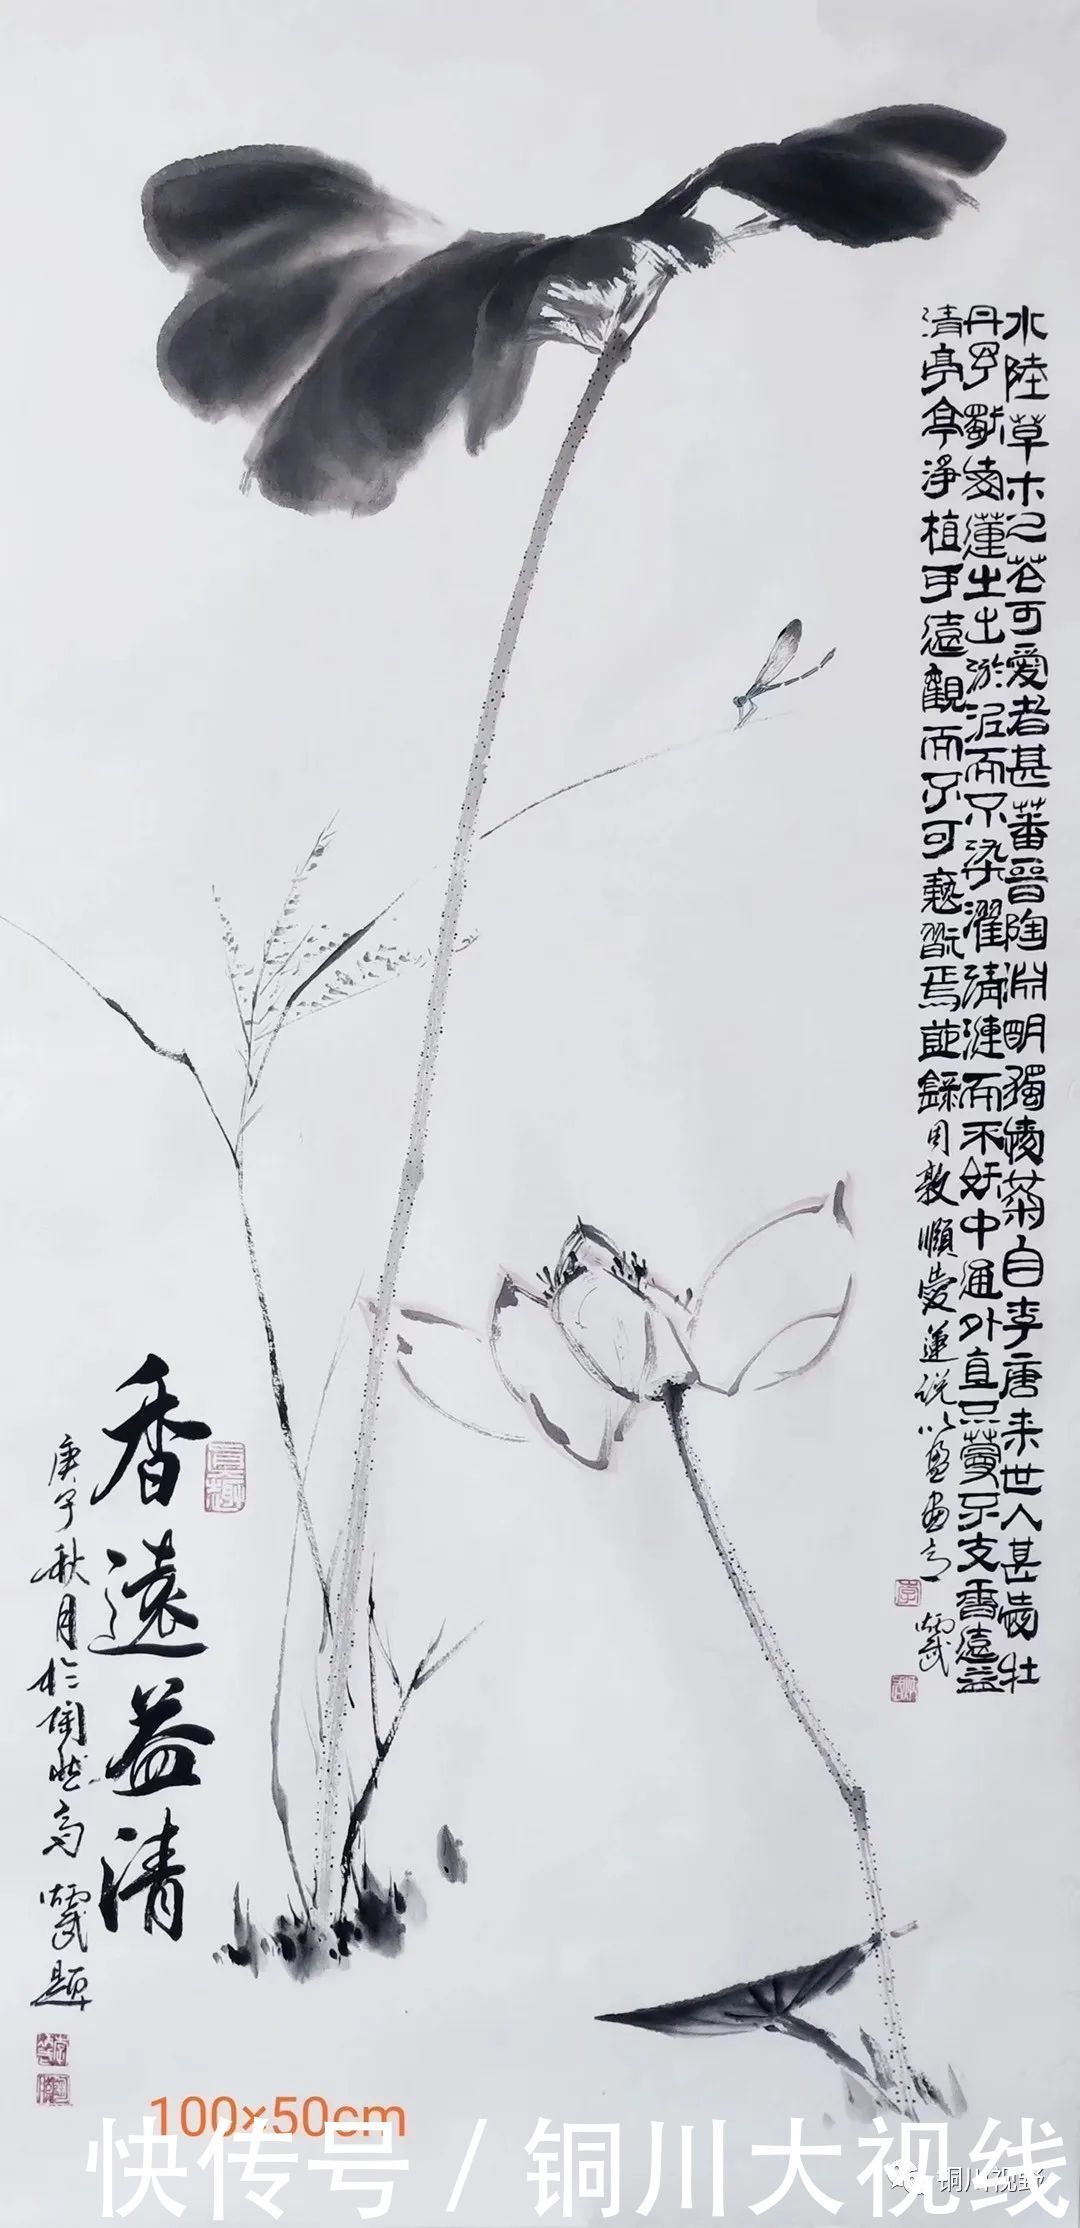 水陸草木之花可愛者甚蕃晉陶淵明獨愛菊自李唐来世人甚愛牡
丹予獨愛蓮之出淤泥而不染濯清漣而不妖中通外直不蔓不支香遠益
清亭亭淨植可遠觀而不可褻翫焉並錄周敦頤愛蓮说以盈画意
真趣
香遠益清
庚子秋月於陶然斋 题
100×50cm
快传号 / 铜川大视线
铜川视野